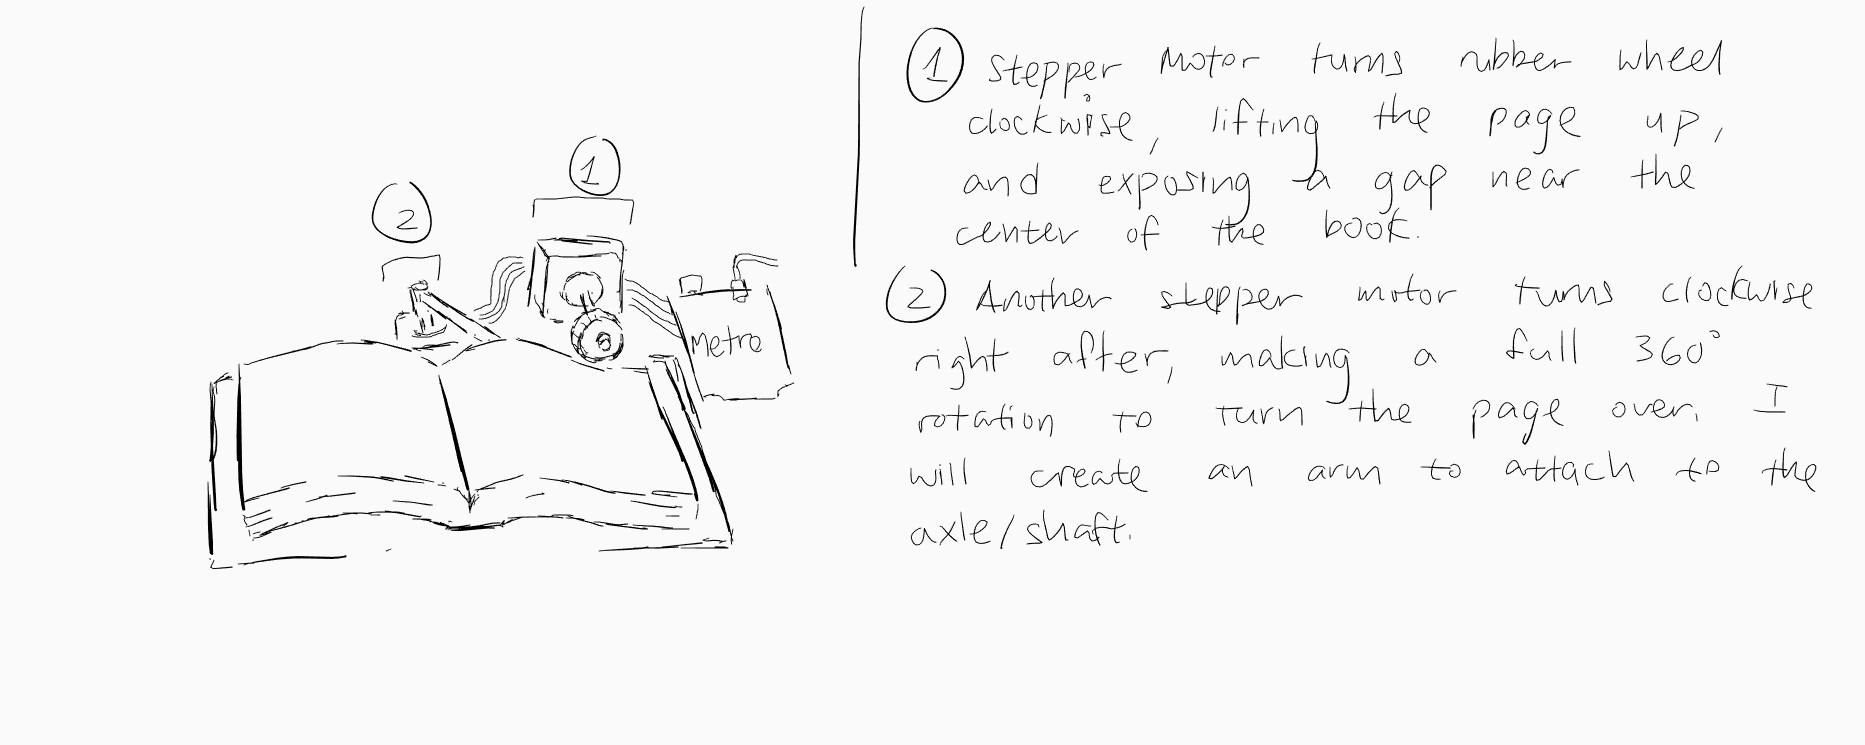 1 Stepper Motor turns rubber wheel
clockwise, lifting the page up,
and exposing a gap near the
center of the book.
2 Another stepper motor turns clockwise
right after, making a full 360°
rotation to turn the page over. I
will create an arm to attach to the
axle/shaft.
1
2
Metro